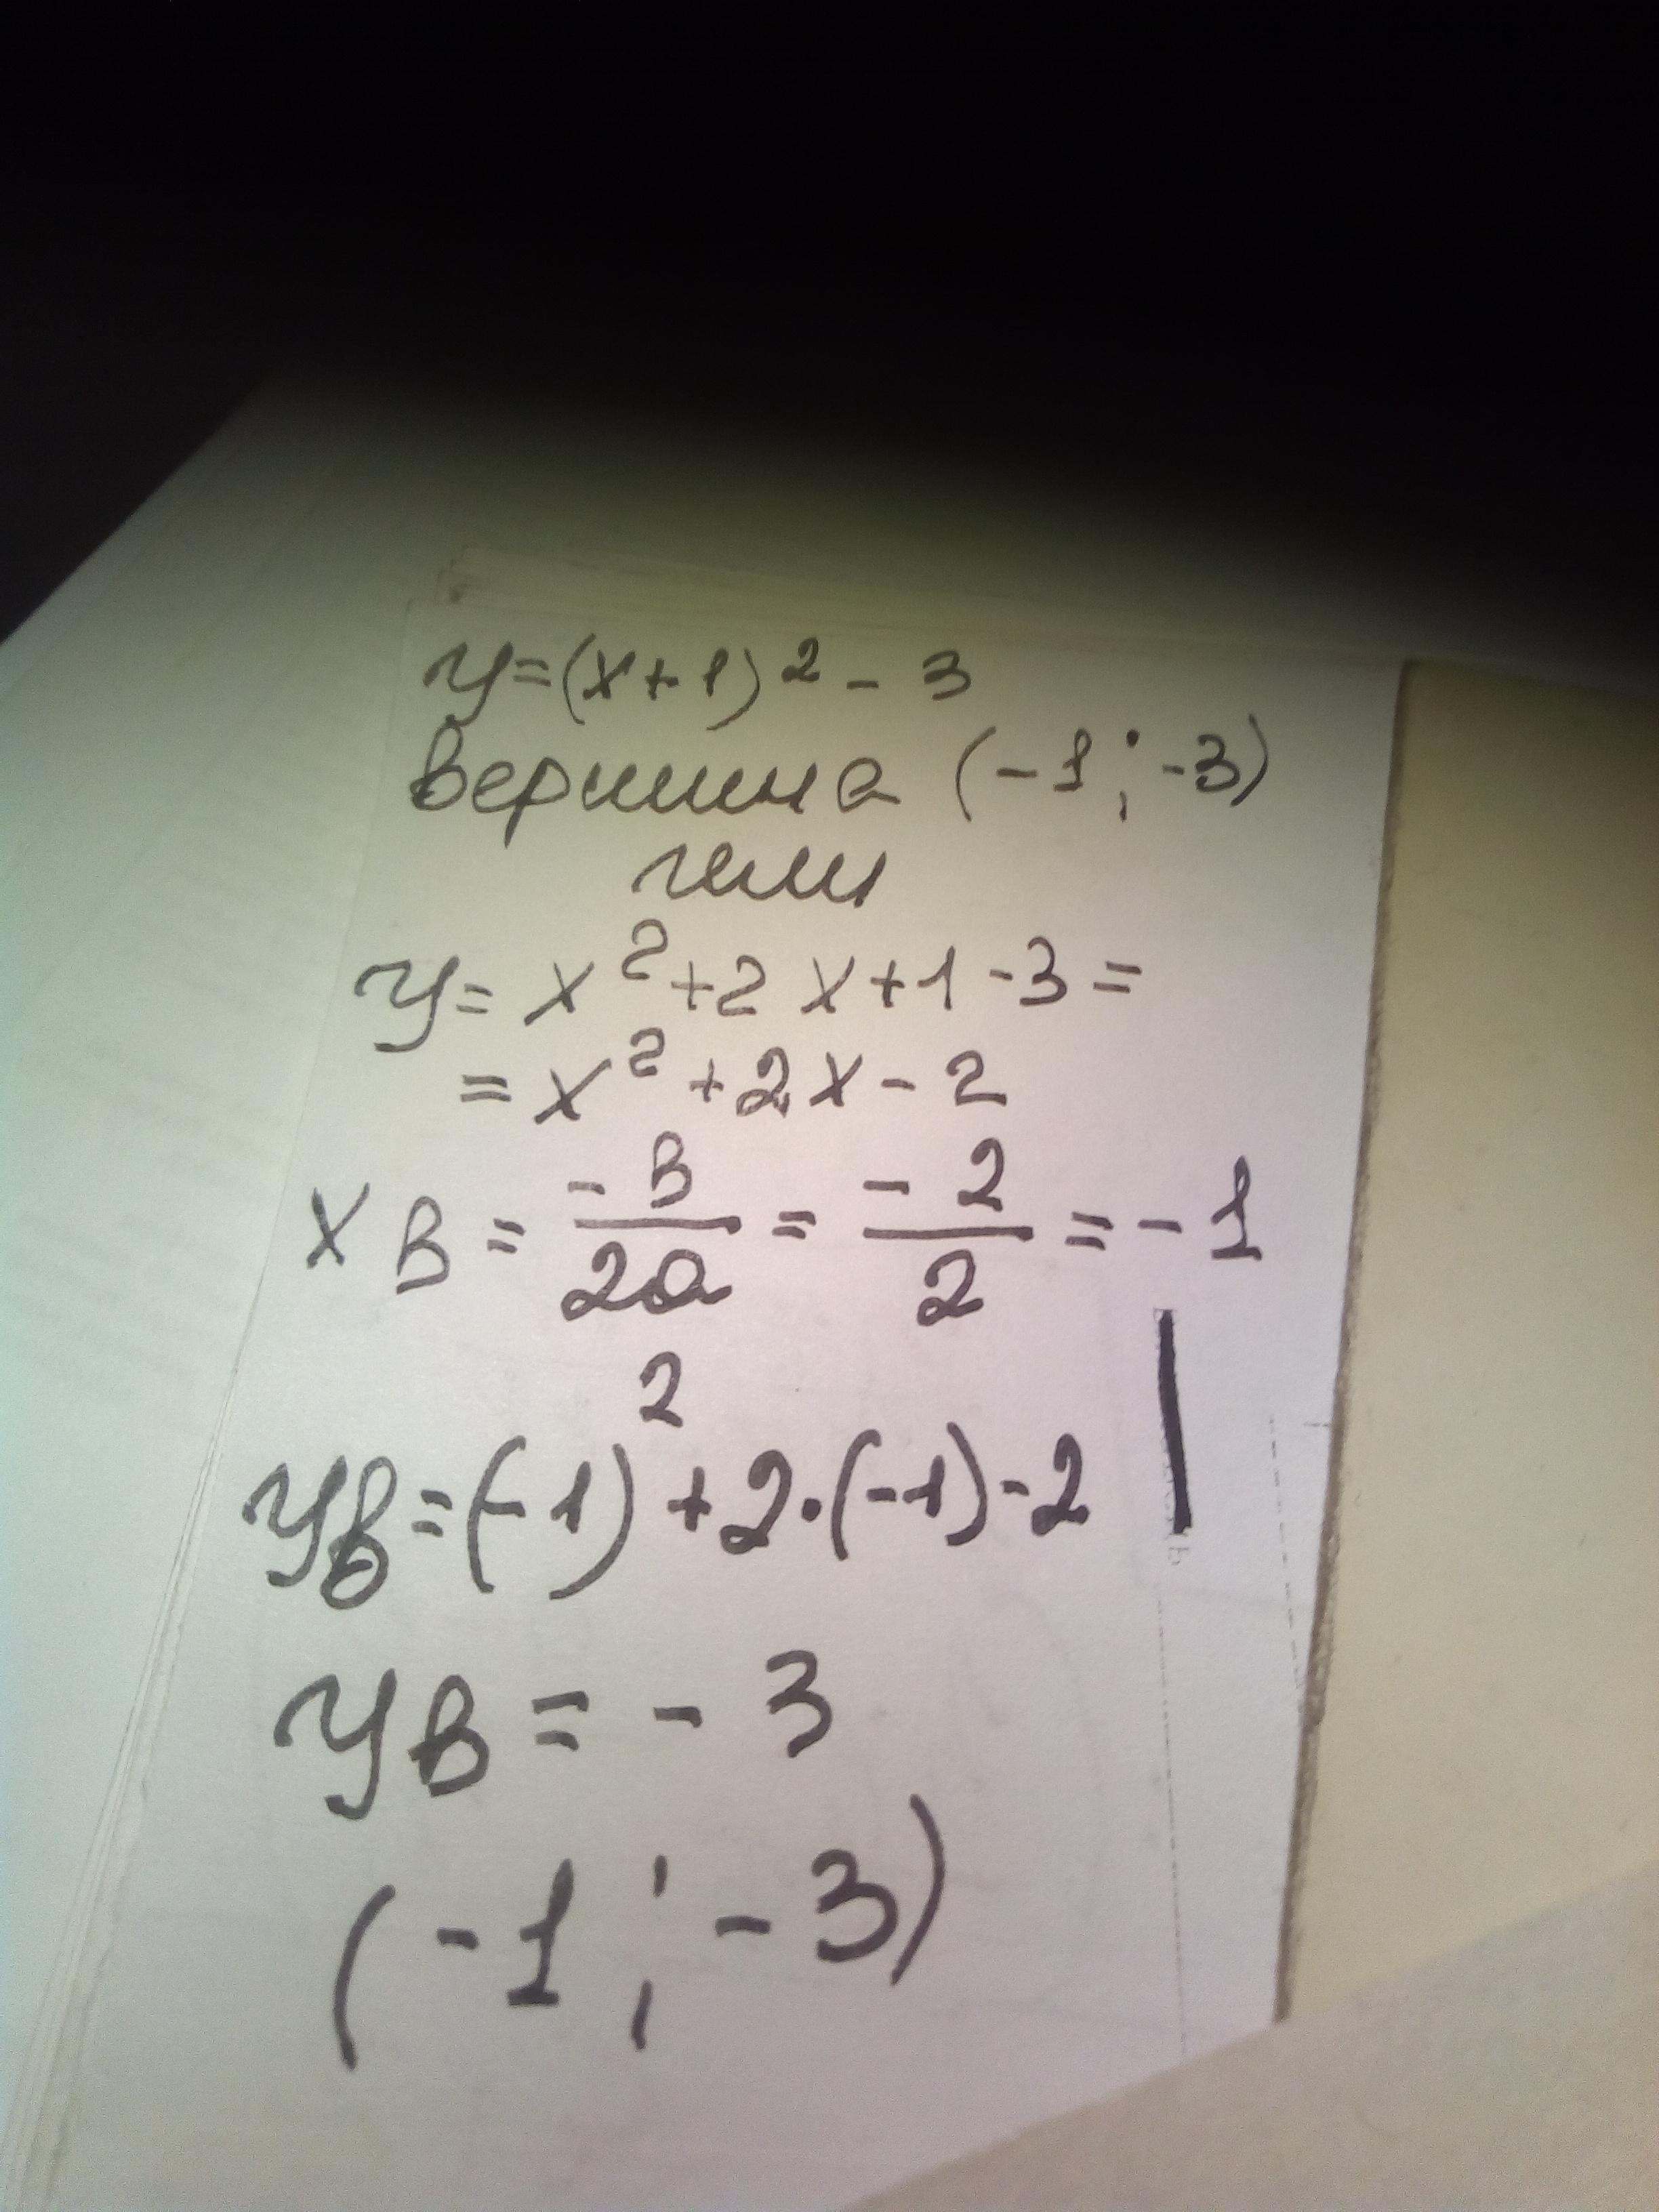 y=(x+1)²-3
вершина (-1;-3)
или
y=x²+2x+1-3=
=x²+2x-2
xв=-в/2а=-2/2=-1
yв=(-1)²+2·(-1)-2
yв=-3
(-1;-3)